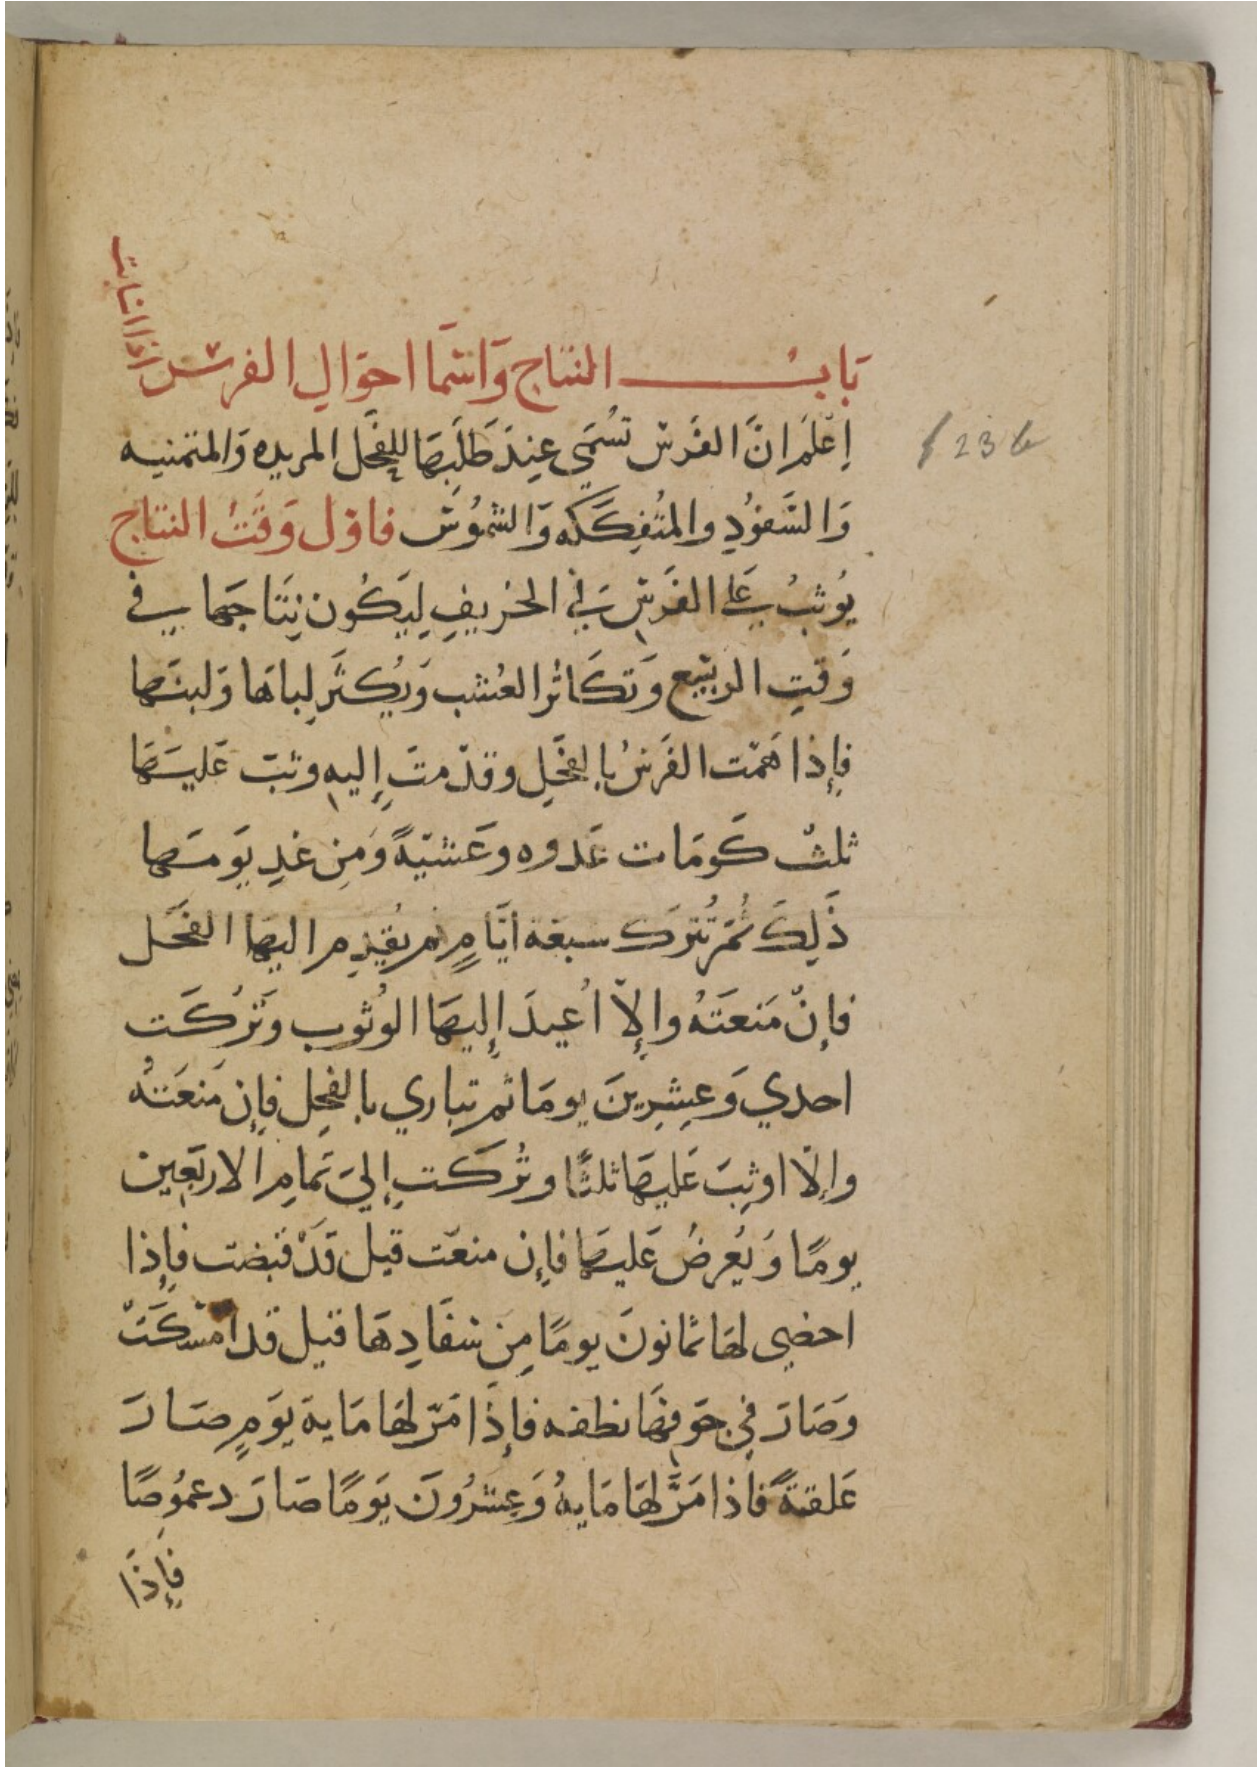 بَابُ النتاج وَاسْمَا احوَالِ الفرس
إِعْلَم انَّ الفَرَس تسُمَي عِندَ طَلَبِهَا لِلفَحَل المريده وَالمتمنيه
وَالسَّفوُدِ والمتُفِكَّكه وَالشموُسَ فاوّل وَقَتُ النتاج
يُوثبُ عَلي الفَرَسِ في الخريفِ لِيَكُون نِتَاجَها في
وَقتِ الربَيع وَتكَاثر العُشب وَيُكثَر لِباهَا وَلبنَها
فإِذا هَمّت الفَرَسُ بالفَحِل وقدّمتَ إِليهِ وثبَ عَليهَا
ثلثُ كَومَات غَدوه وَعَشيّةً وَمِن غدِ يَومهَا
ذَلِكَ ثُمَّ تُترَك سبعَة أيَّامٍ ثم يُقدِم اليهَا الفحَل
فإِنْ مَنعَتهُ وإِلاّ اُعيدَ إِليهَا الوُثوب وَتُرُكَت
احدي وَعِشِرِينَ يومَا ثم تباري بالفحِل فإِن مَنعَتهُ
وإِلاّ اوثِبَ عَليهَا ثلثًا وتُركَت إِليَ تَمامِ الاربَعِين
يومًا وَيُعرضُ عَليهَا فإِن منعَت قيل قَدْ قبضت فإِذا
احصي لهَا ثمانونَ يومًا مِن سفَادِهَا قيل قد امْسَكَتْ
وصَارَ في جَوفِهَا نطفه فإِذَا مَرّ لهَا مَايةَ يَومٍ صَارَ
عَلقةً فاذا مَرَّ لهَا مَايهُ وَعِشرُونَ يَومًا صَارَ دعمُوصًا
فإِذَا
23 b